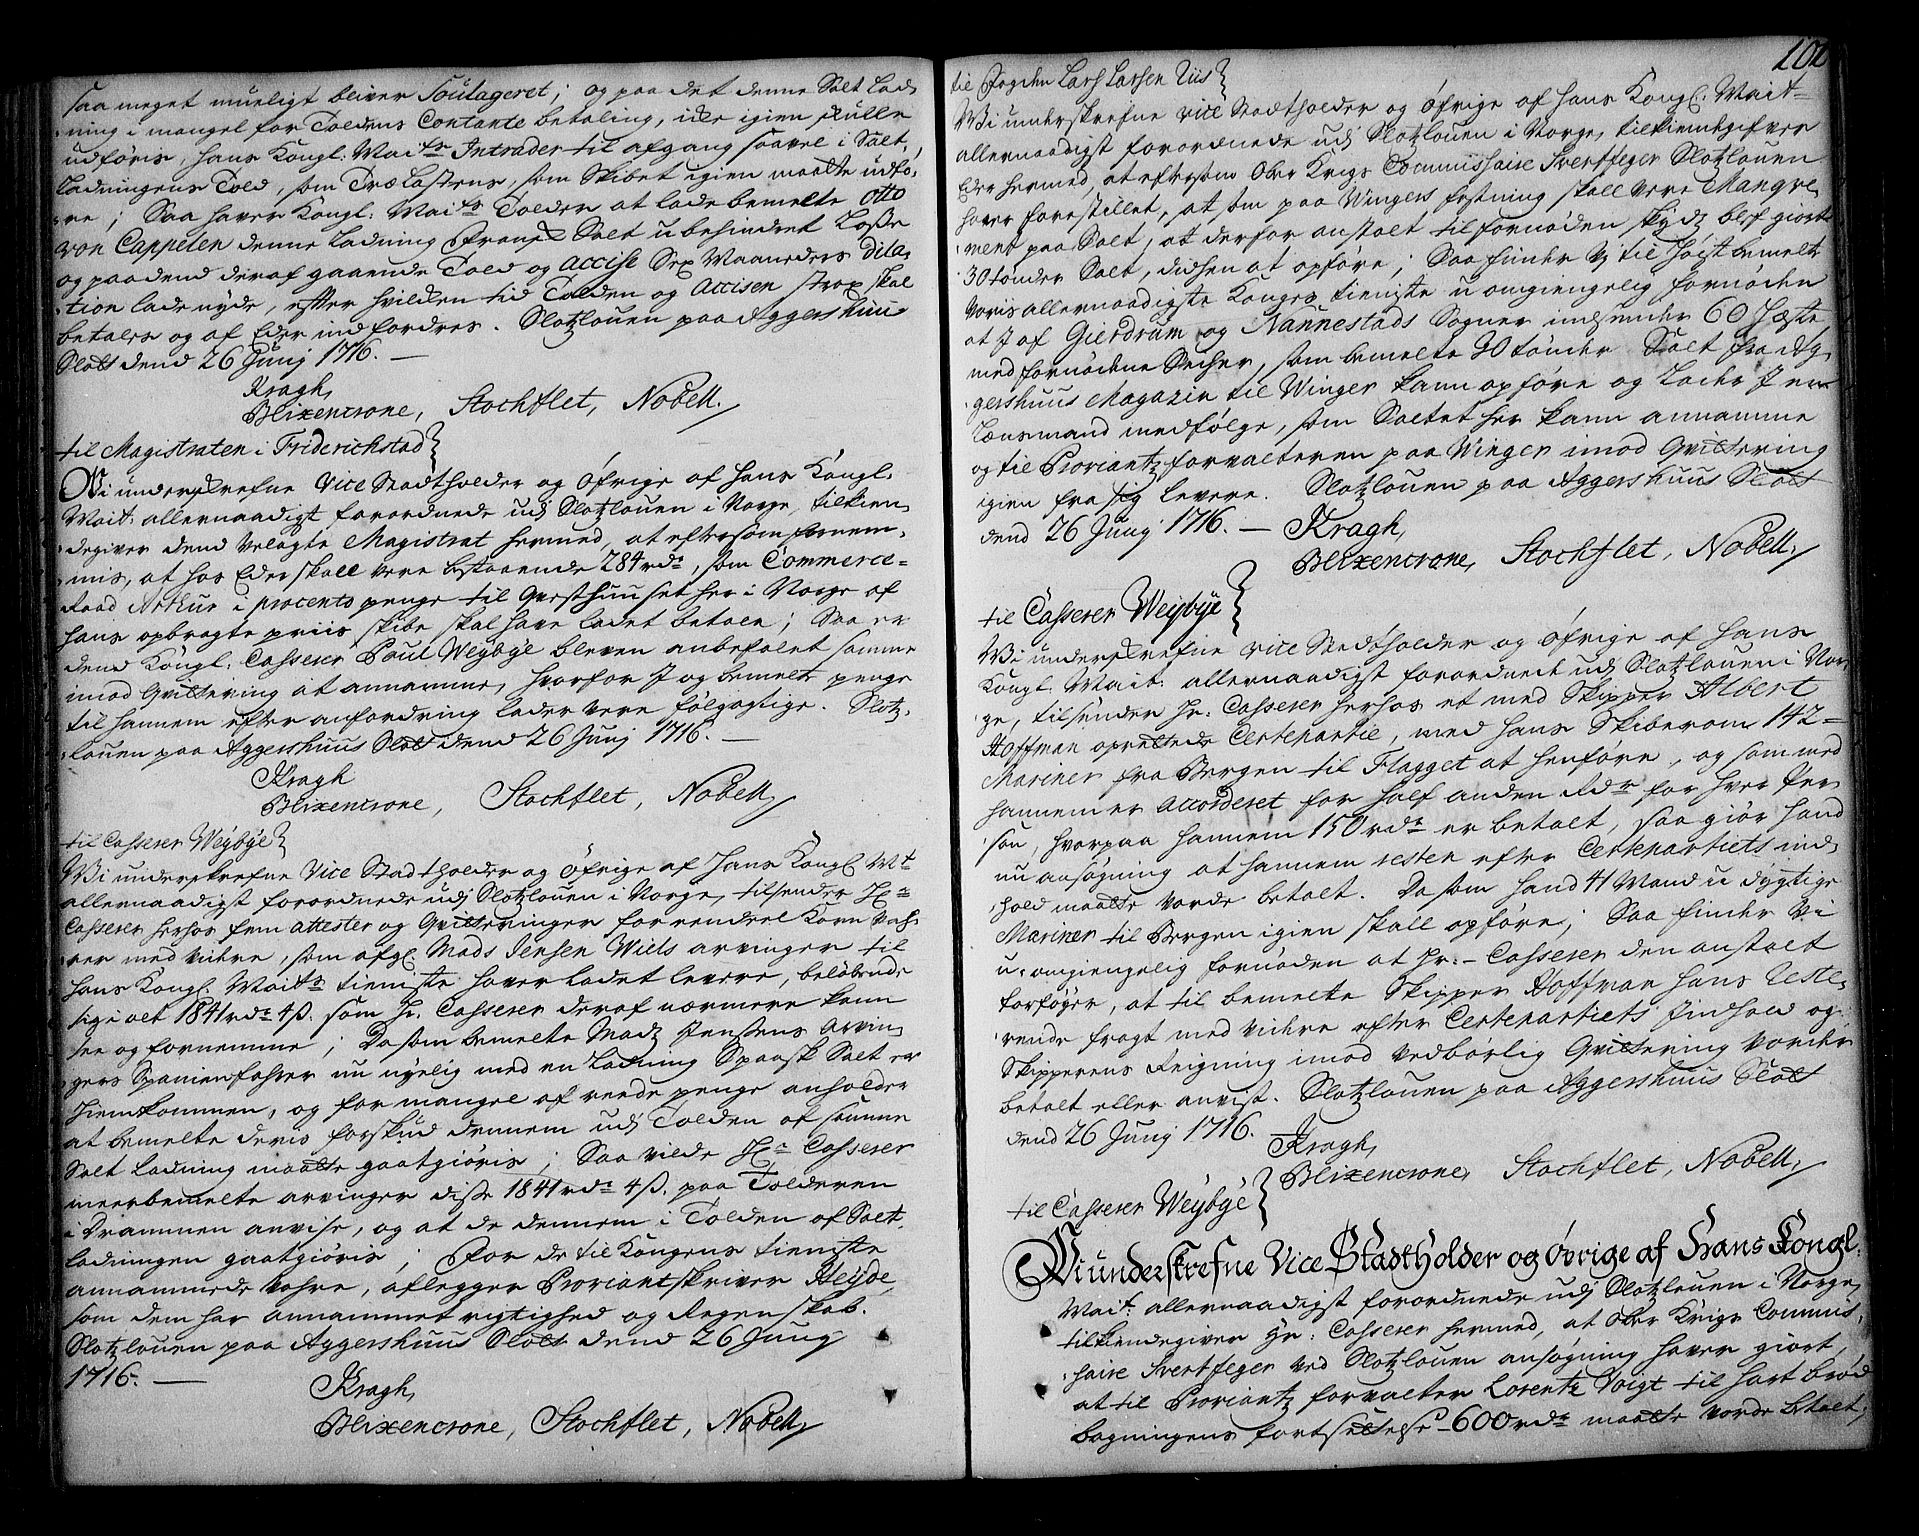 saa meget mueligt bliver Soulageret; og paa det denne Salt Lad,
ning i mangel for Toldens Contante betaling, icke igien skulle
udføris, hans Kongl: Maits Intrader til afgang saavel i Salt,
Ladningens Told, som Træ Lastens, som Skibet igien maatte udfø,
re; Saa haver Kongl: Maits Tolder at lade bemelte Otto
von Cappelen denne Ladning Fransk Salt ubehindret Losse
og paa dend deraf gaaende Told og Accise Sex Maaneders Dila,
tion lade nyde, efter hvilcken tid Tolden og Accisen strax skal
betales og af Eder indfordres. Slotzlouen paa Aggershuus
Slott dend 26 Junj 1716. —
Kragh,
Blixencrone, Stochflet, Nobell.
til Magistraten i Friderichstad
Wi underskrefne Vice Stadtholder og Øfrige af Hans Kongl.
Mait: allernaadigst forordnede udj Slotzlouen i Norge, tilkien,
degiver dend Velagte Magistrat hermed, at eftersom fornem,
mis, at hos Eder skall vere bestaaende 284 rdr, som Commerce=
Raad Arthur i procento penge til Qvesthuuset her i Norge af
hans opbragte priis skibe skal have ladet betale; Saa er
dend Kongl: Casserer Poul Weybye bleven anbefalet samme
imod Qvittering at annamme, hvorfor I og bemelte penge
til hannem efter anfordring lader vere følgagtige. Slotz,
louen paa Aggershuus Slott dend 26 Junj 1716. —
Kragh
Blixencrone, Stochflet, Nobell,
til Casserer Weybye
Wi underskrefne Vice Stadtholder og Øfrige af Hans Kongl Mt
allernaadigst forordnede udj Slotzlouen i Norge, tilsender Hr
Casserer herhos fem attester og Qvitteringer for rendeel Korn Vah,
rer med videre, som afgl. Mads Jensen Wiels arvinger til
Hans Kongl. Maits tieniste haver ladet levere, beløbende
sig i alt 1841 rdr 4ß. som Hr. Casserer deraf nærmere kann
see og fornemme; Da som bemelte Madz Jensens Arvin,
gers Spanienfahrer nu nyelig med en Ladning Spansk Salt er
hiemkommen, og for mangel af reede penge anholder
at bemelte deris forskud dennem udj Tolden af samme
Salt Ladning maatte gaatgiøris; Saa vilde Hr Casserer
meerbemelte arvinger disse 1841 rdr 4ß. paa Tolderen
i Drammen anvise, og at de dennem i Tolden af Salt,
ladningen gaatgiøris; For de til Kongens tieniste
annammede Vahre, aflegger Proviantskriver Heyde,
som dem har annammet rigtighed og Regenskab.
Slotzlouen paa Aggershuus Slott dend 26 Junj
1716. —
Kragh,
Blixencrone, Stochflet, Nobell,
til Fogden Lars Larsen Riis
Wi underskrefne Vice Stadtholder og Øfrige af Hans Kongl. Mait=
allernaadigst forordnede udj Slotzlouen i Norge, tilkiendegifver
Eder hermed, at eftersom Ober Krigs Commissaire Svertfeger Slotzlouen
haver forestillet, at som paa Wingers festning skall vere Mangve,
ment paa Salt, at derfor anstalt til fornøden skydz blef giort
30 tønder Salt, didhen at opføre; Saa finder Vj til Høistbemelte
Voris allernaadigste Konges tieniste uomgiengelig fornøden
at I af Gierdrum og Nannestads Sogner indsender 60 Heste
med fornødene Secher, som bemelte 30 tønder Salt fra Ag,
gershuus Magazin til Winger kann opføre og Lader I en
Lænsmand medfølge, som Saltet her kann annamme
og til Proviantz forvalteren paa Winger imod Qvittering
igien fra sig levere. Slotzlouen paa Aggershuus Slott
dend 26 Junj 1716. — Kragh,
Blixencrone, Stochflet, Nobell,
til Casserer Weybye
Wi underskrefne Vice Stadtholder og Øfrige af Hans
Kongl. Mait: allernaadigst forordnede udj Slotzlouen i Nor,
ge, tilsender Hr. Casserer herhos et med Skipper Albert
Hoffman oprettede Certepartie, med hans Skiberom 142=
Mariner fra Bergen til Flagget at henføre, og som med
hannem er accorderet for half anden Rdr for hver Per
son, hvorpaa hannem 150 rdr er betalt, saa giør hand
nu ansøgning at hannem resten efter Certepartiets ind,
hold maatte vorde betalt. Da som hand 41 Mand udygtige
Mariner til Bergen igien skall opføre; Saa finder Vi
u-omgiengelig fornøden at Hr:- Casserer den anstalt
forføyer, at til bemelte Skipper Hoffman hans Reste,
rende fragt med videre efter Certepartiets Jndhold og
Skipperens Reigning imod vedbørlig Qvittering vorder
betalt eller anvist. Slotzlouen paa Aggershuus Slott
dend 26 Junj 1716. Kragh,
Blixencrone, Stochflet, Nobell,
til Casserer Weybye
Wi underskrefne Vice Stadtholder og Øvrige af Hans Kongl:
Mait: allernaadigst forordnede udj Slotzlouen i Norge,
tilkiendegiver Hr: Casserer hermed, at Ober Krigs Commis,
saire Svertfeger ved Slotzlouen ansøgning haver giort,
at til Proviantz forvalter Lorentz Voigt til hart brød
bagningens fortsættelse 600 rdr maatte vorde betalt,